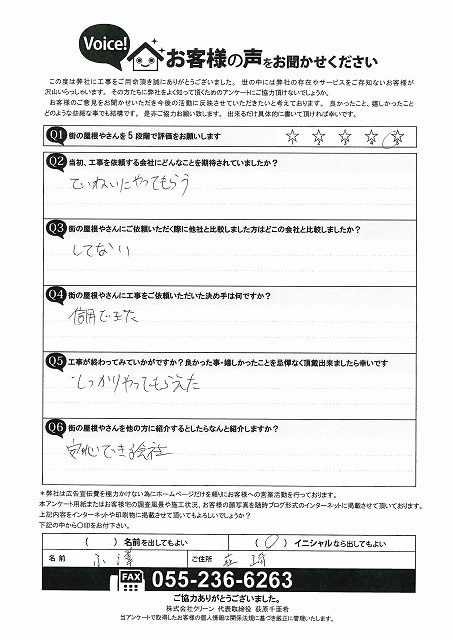 Voice!
お客様の声をお聞かせください
この度は弊社に工事をご用命頂き誠にありがとうございました。 世の中には弊社の存在やサービスをご存知ないお客様が
沢山いらっしゃいます。 その方たちに弊社をよく知って頂くためのアンケートにご協力頂けないでしょうか。
お客様のご意見をお聞かせいただき今後の活動に反映させていただきたいと考えております。 良かったこと、嬉しかったこと
どのような些細な事でも結構です。 是非ご協力お願い致します。 出来るだけ具体的に書いて頂ければ幸いです。
Q1 街の屋根やさんを5段階で評価をお願いします
1 2 3 4 5
Q2 当初、工事を依頼する会社にどんなことを期待されていましたか?
ていねいにやってもらう
Q3 街の屋根やさんにご依頼いただく際に他社と比較しました方はどこの会社と比較しましたか?
してない
Q4 街の屋根やさんに工事をご依頼いただいた決め手は何ですか?
信用できた
Q5 工事が終わってみていかがですか?良かった事・嬉しかったことを忌憚なく頂戴出来ましたら幸いです
しっかりやってもらえた
Q6 街の屋根やさんを他の方に紹介するとしたらなんと紹介しますか?
安心できる会社
*弊社は広告宣伝費を極力かけない為にホームページだけを頼りにお客様への営業活動を行っております。
本アンケート用紙またはお客様宅の調査風景や施工状況、お客様の顔写真を随時ブログ形式のインターネットに掲載させて頂いております。
上記内容をインターネットや印刷物に掲載させて頂いてもよろしいでしょうか?
下記の中から〇印をお付下さい。
( )名前を出してもよい (〇)イニシャルなら出してもよい
名前 小澤 ご住所 韮崎
FAX 055-236-6263
ご協力ありがとうございました。
株式会社クリーン 代表取締役 萩原千亜希
当アンケートで取得したお客様の個人情報は関係法規に基づき厳正に管理いたします。